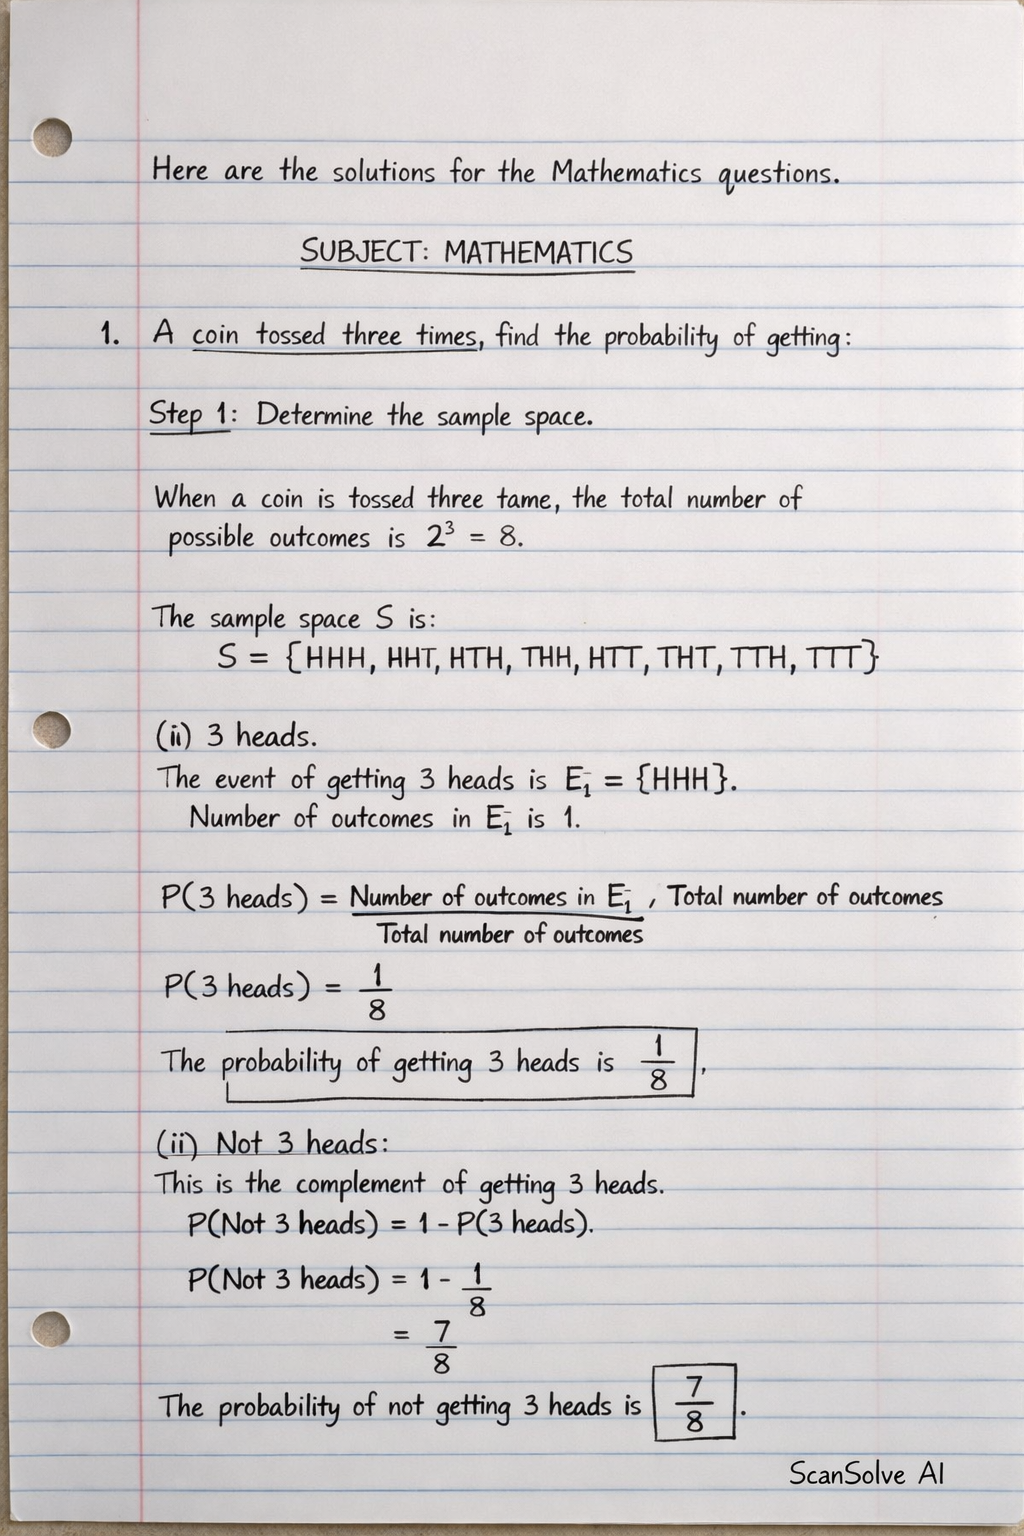 Here are the solutions for the Mathematics questions.
SUBJECT: MATHEMATICS
1. A coin tossed three times, find the probability of getting:
Step 1: Determine the sample space.
When a coin is tossed three tame, the total number of
possible outcomes is 2³ = 8.
The sample space S is:
S = {HHH, HHT, HTH, THH, HTT, THT, TTH, TTT}
(ii) 3 heads.
The event of getting 3 heads is E₁ = {HHH}.
Number of outcomes in E₁ is 1.
P(3 heads) = Number of outcomes in E₁ , Total number of outcomes
Total number of outcomes
P(3 heads) = 1/8
The probability of getting 3 heads is 1/8.
(ii) Not 3 heads:
This is the complement of getting 3 heads.
P(Not 3 heads) = 1 - P(3 heads).
P(Not 3 heads) = 1 - 1/8
= 7/8
The probability of not getting 3 heads is 7/8.
ScanSolve AI